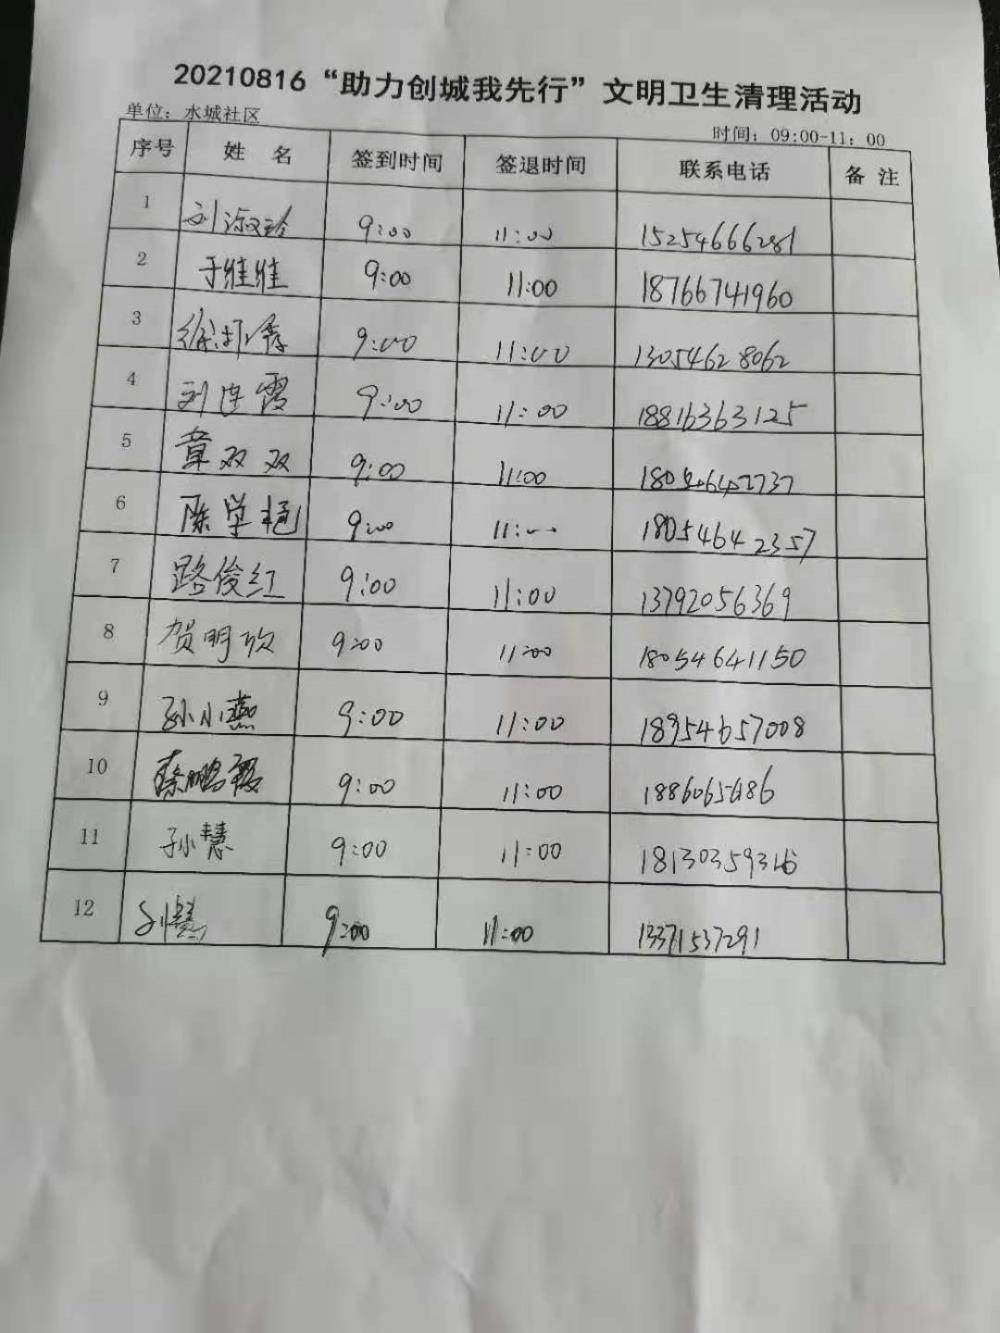 20210816“助力创城我先行”文明卫生清理活动
单位：水城社区 时间：09:00-11：00
序号 姓 名 签到时间 签退时间 联系电话 备 注
1 刘淑玲 9:00 11:00 15254666281
2 于维维 9:00 11:00 18766741960
3 9:00 11:00 13054628062
4 刘连霞 9:00 11:00 18816363125
5 章双双 9:00 11:00
6 陈学艳 9:00 11:00 18054642357
7 路俊红 9:00 11:00 13792056369
8 贺明欣 9:00 11:00 18054641150
9 孙小燕 9:00 11:00 18954657008
10 蔡鹏霞 9:00 11:00
11 孙慧 9:00 11:00 18130359316
12 刘慧 9:00 11:00 13371537291